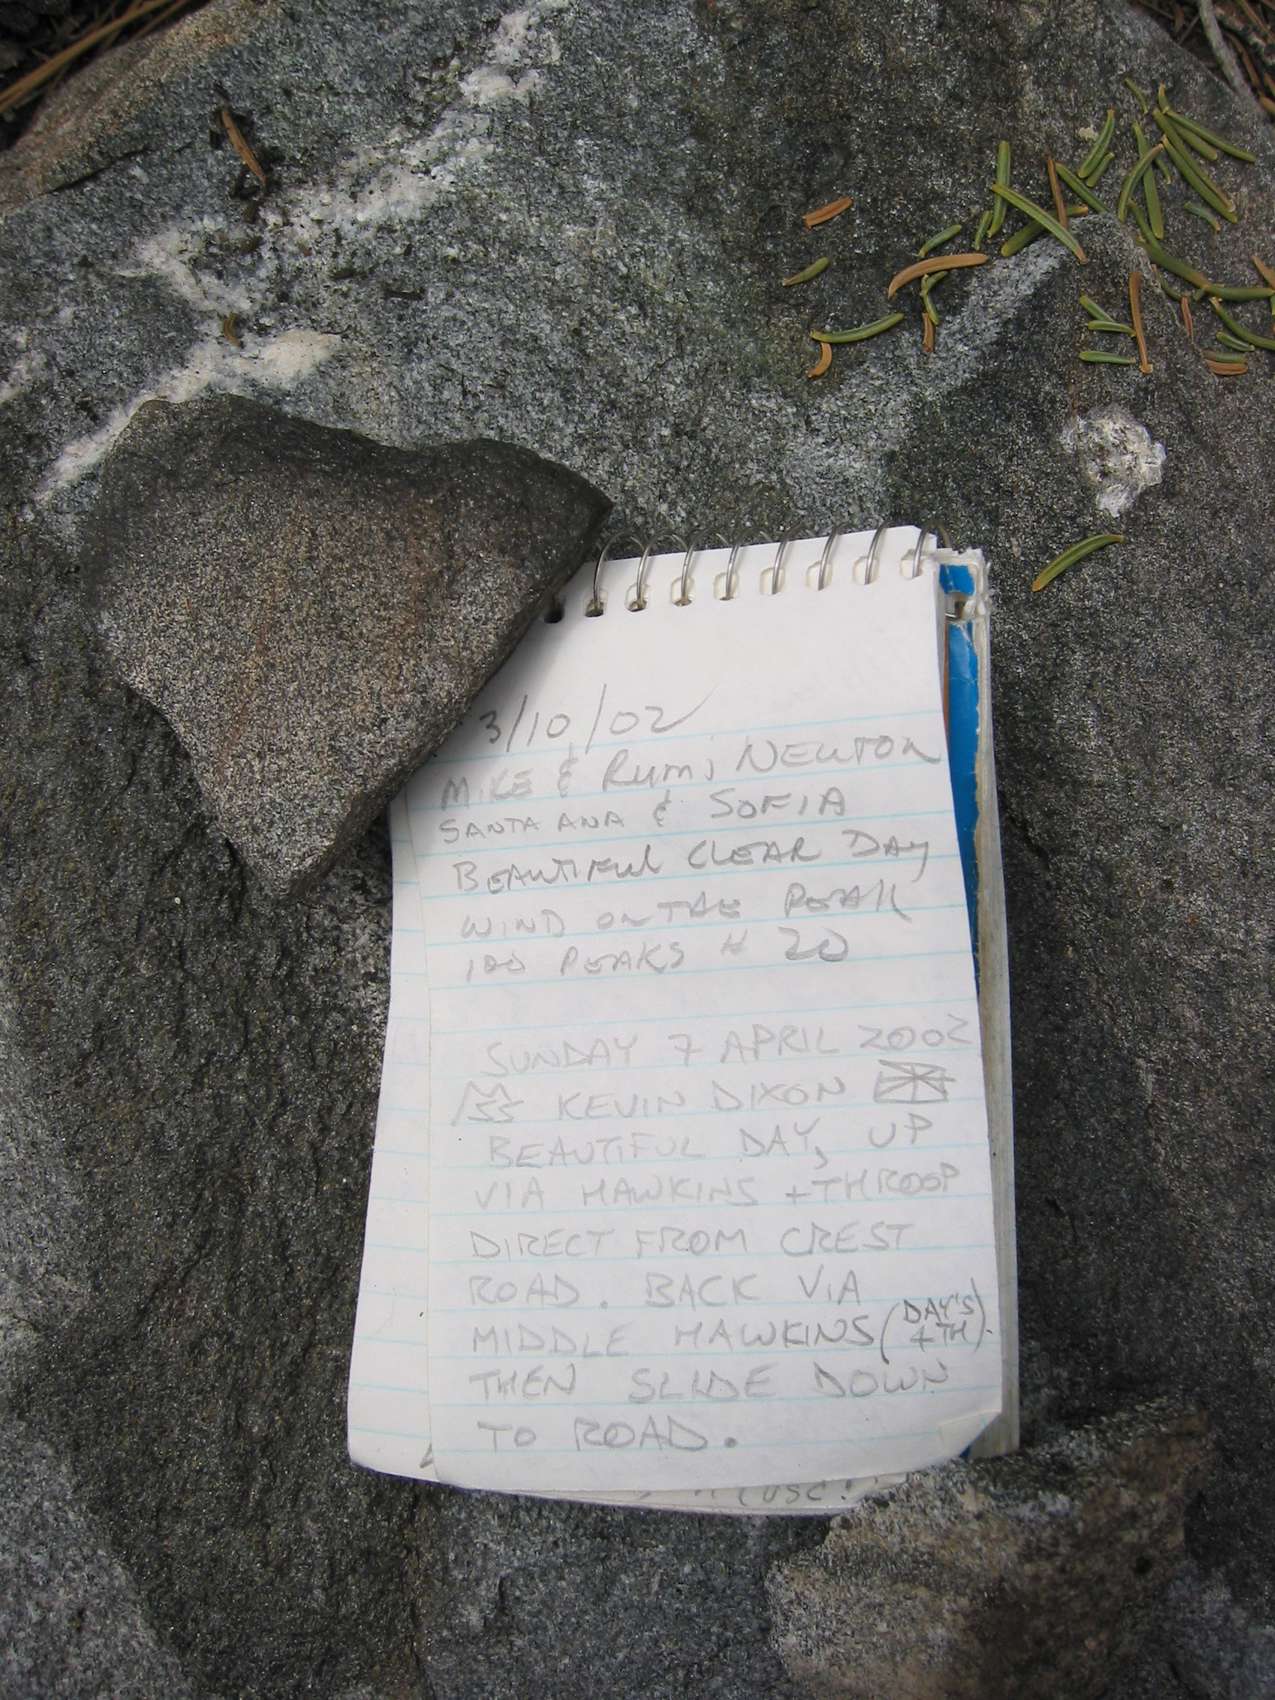 3/10/02
MIKE & RUMI NEWTON
SANTA ANA & SOFIA
BEAUTIFUL CLEAR DAY
WIND ON THE PEAK
100 PEAKS # 20
SUNDAY 7 APRIL 2002
KEVIN DIXON
BEAUTIFUL DAY, UP
VIA HAWKINS + THROOP
DIRECT FROM CREST
ROAD. BACK VIA
MIDDLE HAWKINS (DAY'S + TH).
THEN SLIDE DOWN
TO ROAD.